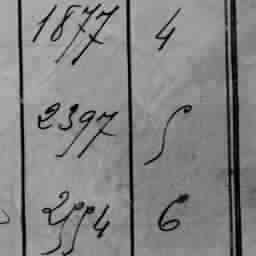 1877 4
2397 5
2554 6